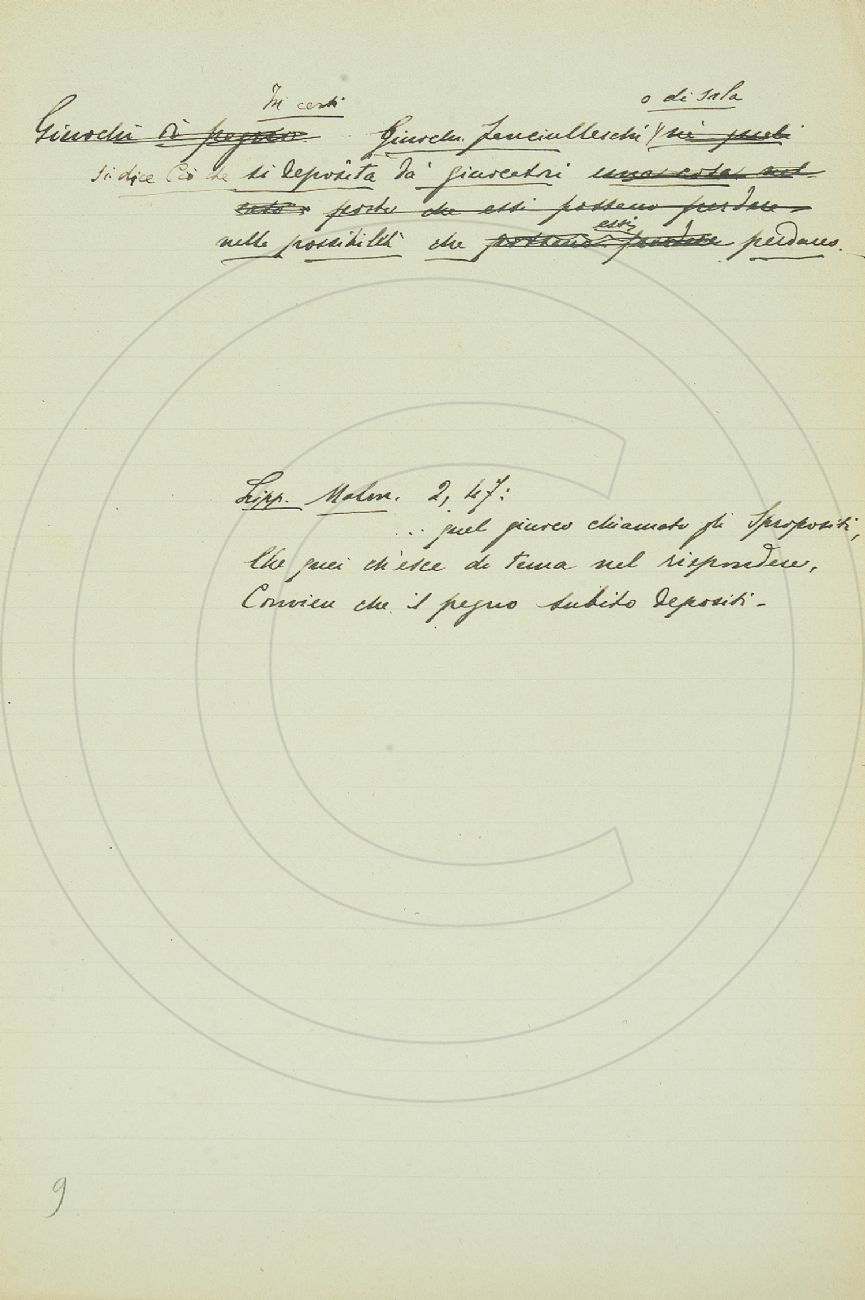 In certi o di sala
Giuochi di pegno Giuochi fanciulleschi nei quali
si dice Ciò che si deposita da' giuocatori una cosa
che essi possono perdere
essi
nelle possibilità che possano perdere perdano.
Lipp. Malm. 2, 47:
... quel giuoco chiamato gli Spropositi,
Che quei ch'esce di tema nel rispondere,
Convien che il pegno subito depositi.
9